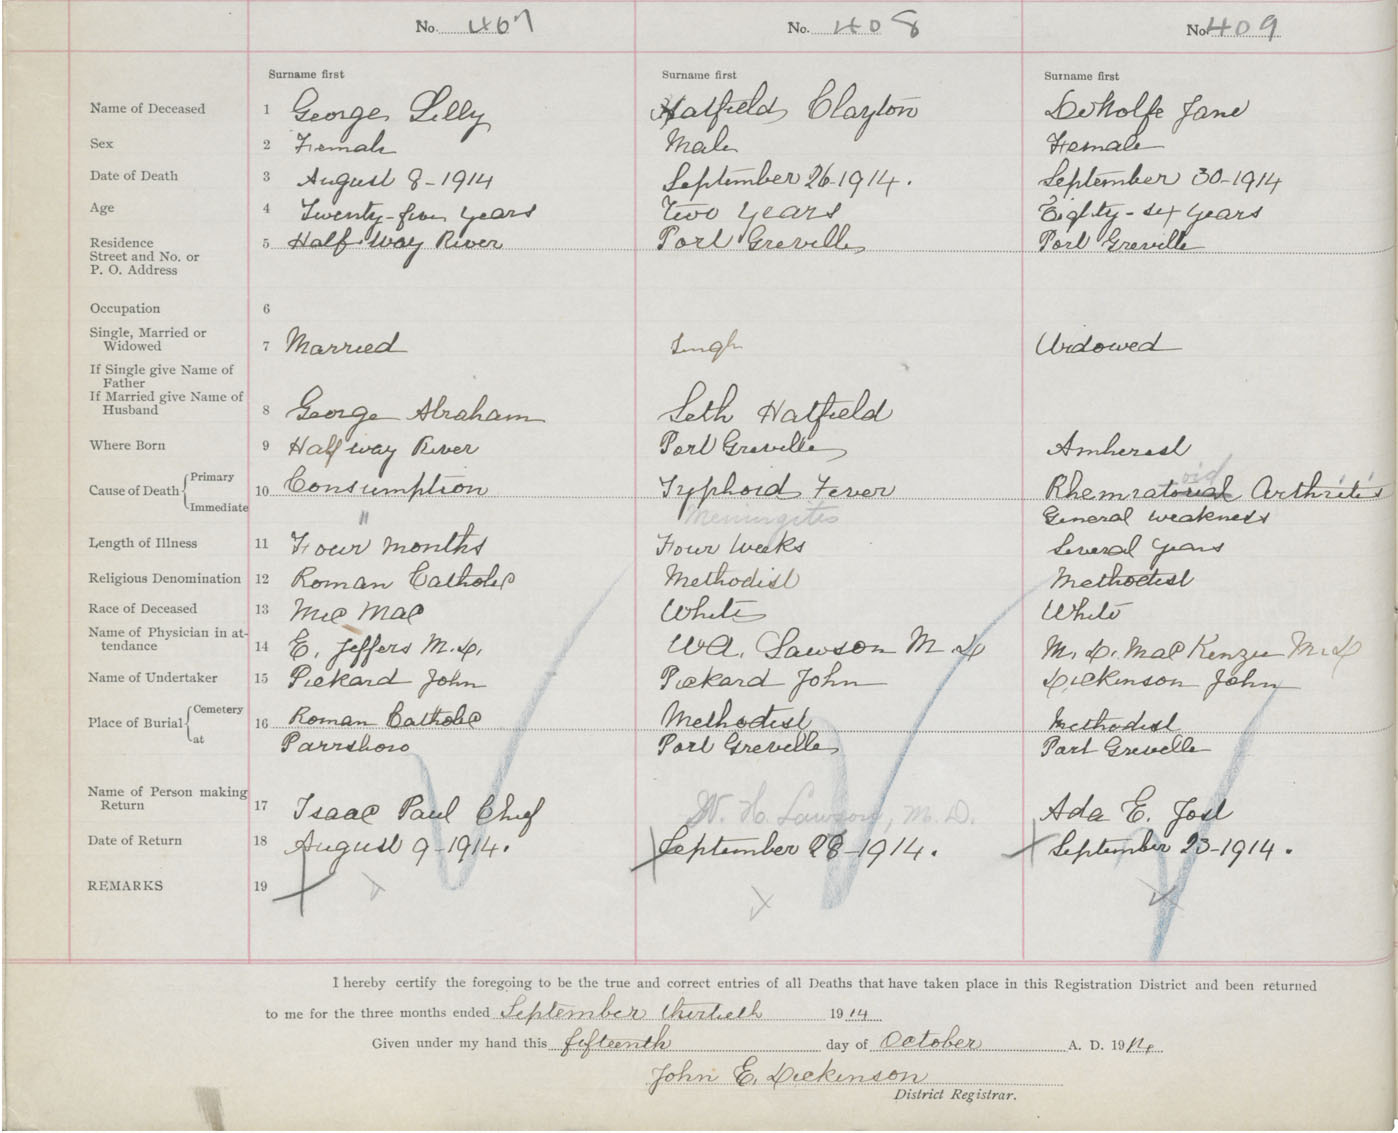 No. 407 No. 408 No. 409
Surname first Surname first Surname first
Name of Deceased 1 George, Lilly Hatfield, Clayton DeWolfe Jane
Sex 2 Female Male Female
Date of Death 3 August 8-1914 September 26-1914. September 30-1914
Age 4 Twenty-five years Two years Eighty-six years
Residence 5 Half Way River Port Greville Port Greville
Street and No. or
P. O. Address
Occupation 6
Single, Married or
Widowed 7 Married Single Widowed
If Single give Name of
Father
If Married give Name of
Husband 8 George Abraham Seth Hatfield
Where Born 9 Half way River Port Greville Amherst
Cause of Death { Primary 10 Consumption Typhoid Fever Rhemratorial oid Arthritis
Immediate " Meningitis General weakness
Length of Illness 11 Four months Four weeks Several years
Religious Denomination 12 Roman Catholic Methodist Methodist
Race of Deceased 13 Mic Mac White White
Name of Physician in at-
tendance 14 E. Jeffers M.D. W.A. Lawson M D M. D. MacKenzie M.D
Name of Undertaker 15 Pickard John Pickard John Dickinson John
Place of Burial { Cemetery 16 Roman Catholic Methodist Methodist
at Parrsboro Port Greville Port Greville
Name of Person making
Return 17 Isaac Paul Chief W. H. Lawson, M.D. Ada E. Jost
Date of Return 18 August 9-1914. September 28-1914. September 23-1914.
REMARKS 19
I hereby certify the foregoing to be the true and correct entries of all Deaths that have taken place in this Registration District and been returned
to me for the three months ended September thirtieth 1914
Given under my hand this fifteenth day of October A. D. 1914
John E. Dickinson
District Registrar.